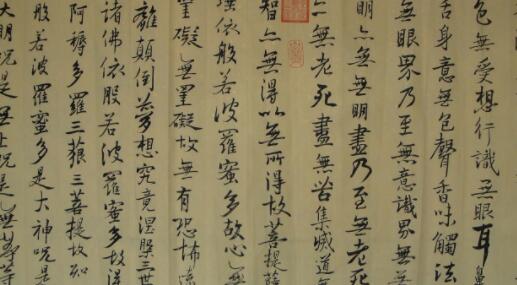 色無受想行識無眼耳鼻
舌身意無色聲香味觸法
無眼界乃至無意識界無無
明亦無無明盡乃至無老死
亦無老死盡無苦集滅道無
智亦無得以無所得故菩提薩
埵依般若波羅蜜多故心無
罣礙無罣礙故無有恐怖遠
離顛倒夢想究竟涅槃三世
諸佛依般若波羅蜜多故得
阿耨多羅三藐三菩提故知
般若波羅蜜多是大神呪是
大明呪是無上呪是無等等